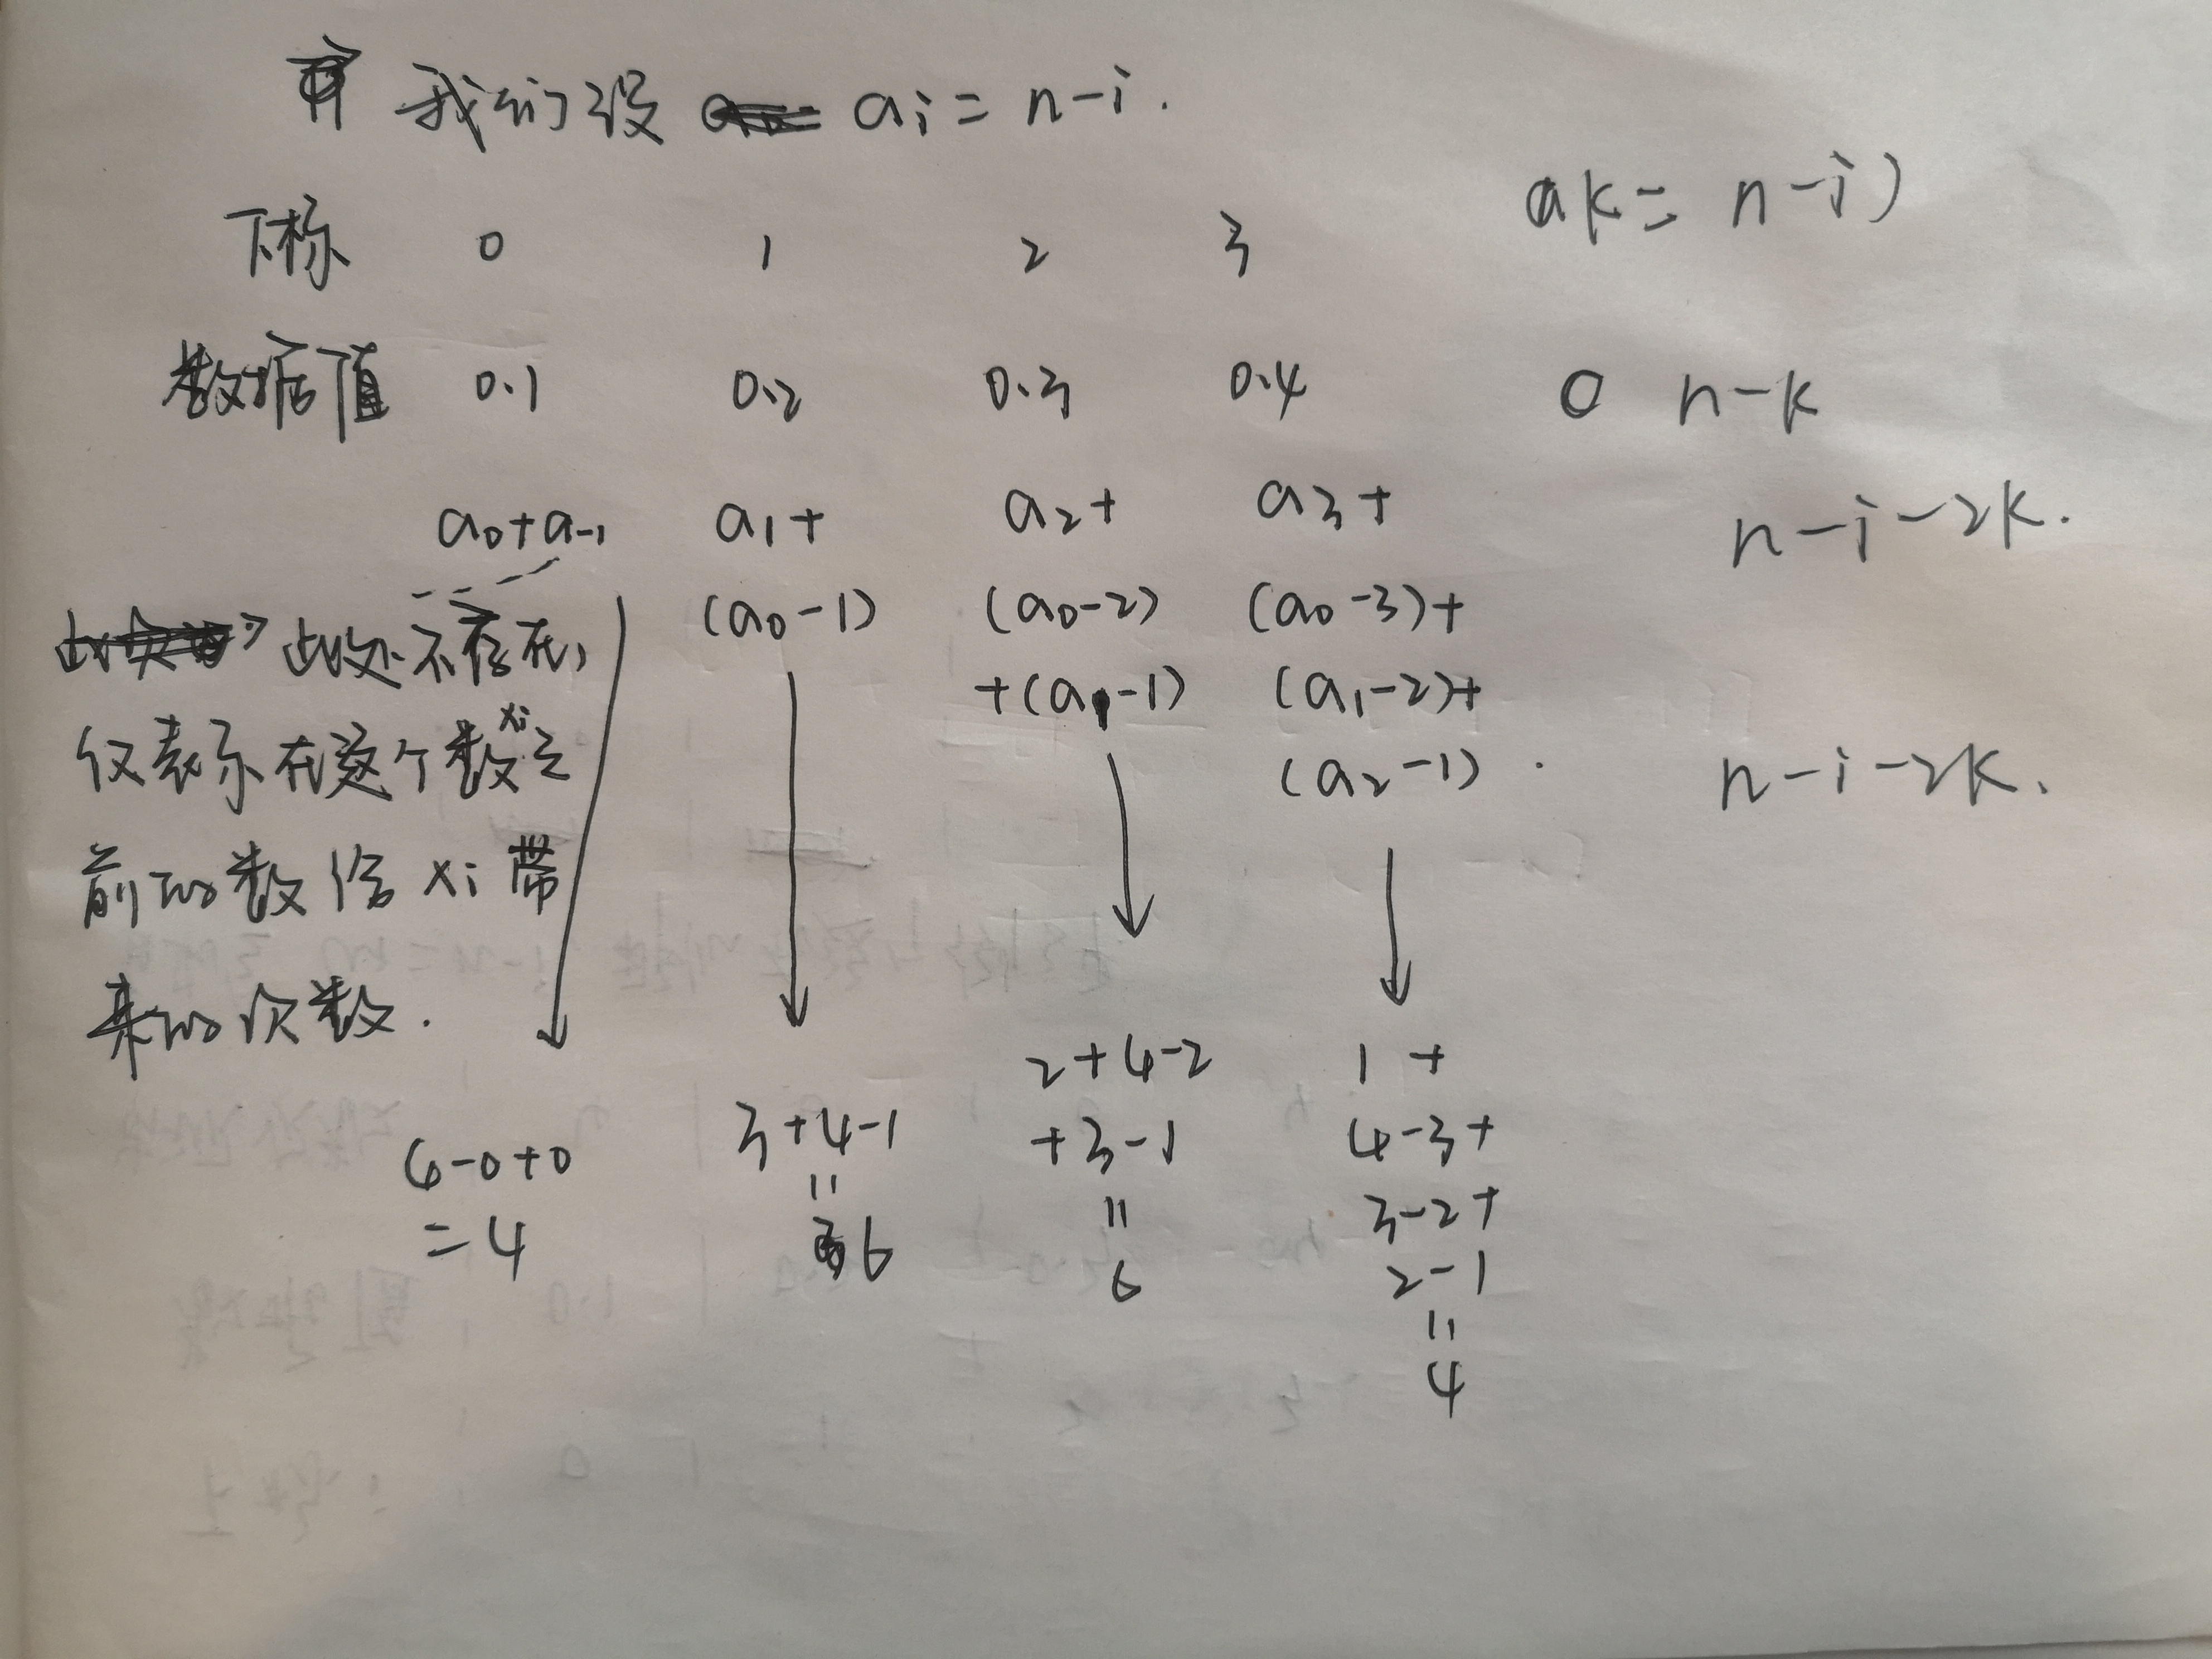 我们设 ai = n-i.
ak = n-i)
下标 0 1 2 3
数据值 0.1 0.2 0.3 0.4
0 n-k
a0+a-1 a1+ a2+ a3+
n-i-2k.
(a0-1) (a0-2) (a0-3)+
此处不存在,
+(a1-1) (a1-2)+
仅表示在这个数xi之
(a2-1).
n-i-2k.
前的数给xi带
来的次数.
2+4-2 1+
3+4-1 +3-1 4-3+
4-0+0 = = 3-2+
=4 6 6 2-1
=
4